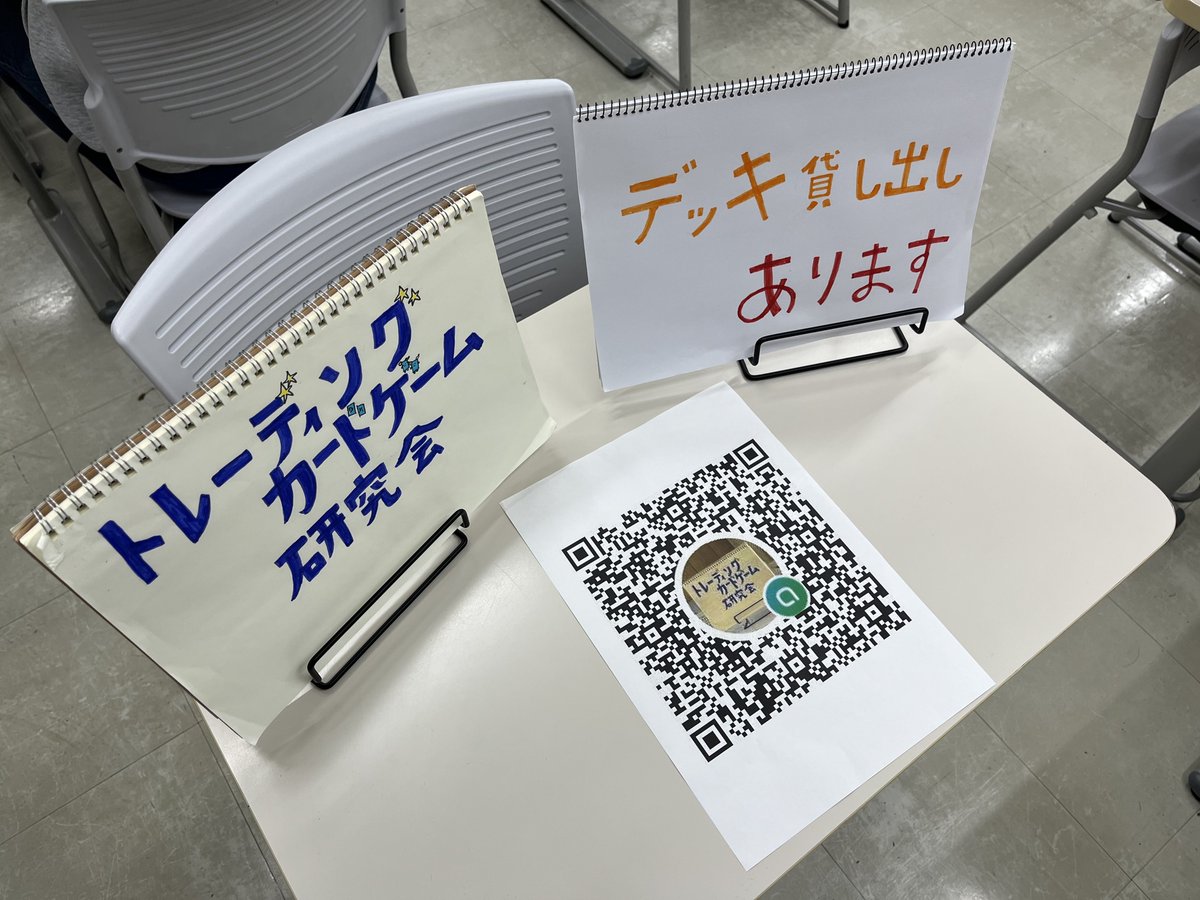 トレーディング
カードゲーム
研究会
デッキ貸し出し
あります
トレーディング
カードゲーム
研究会